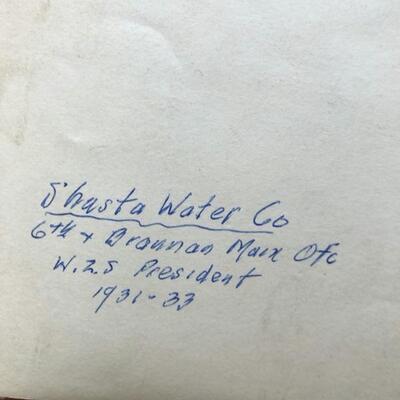 Shasta Water Co
6th + Brannan Main Ofc
W.Z.S President
1931-33